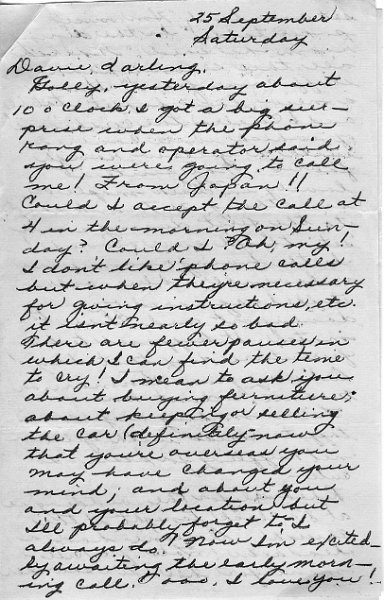 25 September
Saturday
Davie darling,
Golly, yesterday about
10 o'clock I got a big sur-
prise when the phone
rang and operator said
you were going to call
me! From Japan!!
Could I accept the call at
4 in the morning on Sun-
day? Could I? Ah, my!
I don't like phone calls
but when they're necessary
for giving instructions, etc.
it isn't nearly so bad.
There are fewer pauses in
which I can find the time
to cry! I mean to ask you
about buying furniture;
about keeping or selling
the car (definitely - now
that you're overseas you
may have changed your
mind; and about you
and your location but
I'll probably forget to - I
always do. Now I'm excited-
ly awaiting the early morn-
ing call. ooo, I love you!